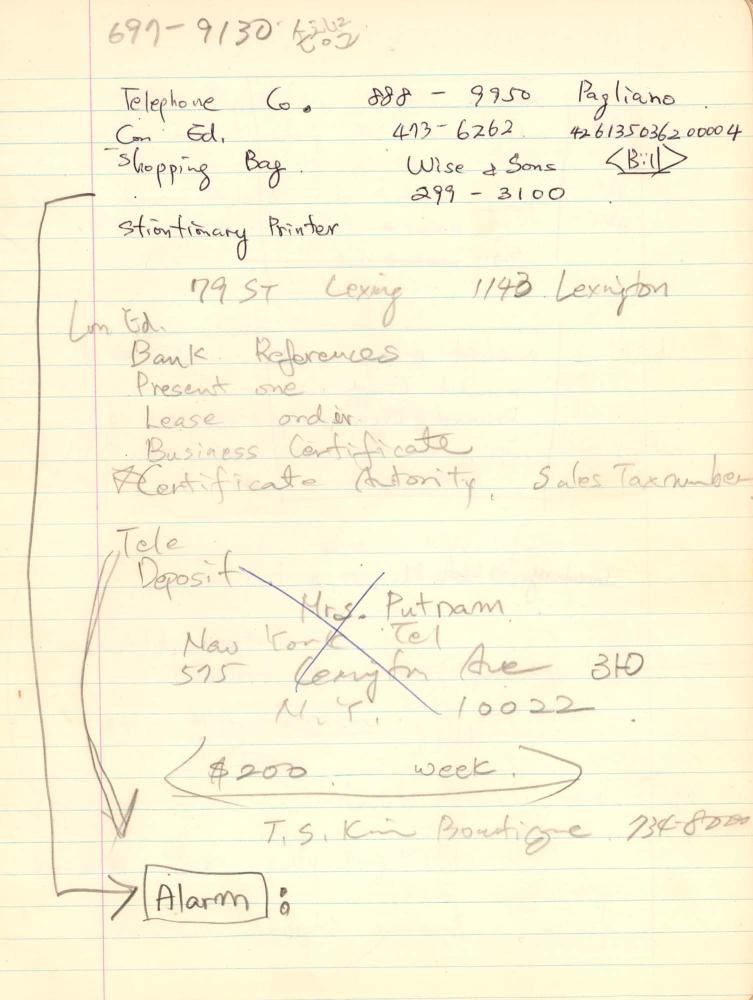 697-9130
Telephone Co. 888 - 9950 Pagliano
Con Ed. 473-6262 42613503620 0004
Shopping Bag. Wise & Sons <Bill>
299 - 3100
Stiontionary Printer
79 ST Lexing 1143 Lexington
Con Ed.
Bank References
Present one
Lease order
Business Certificate
Certificate Autority, Sales Tax number
Tele
Deposit
Mrs. Putnam
New York Tel
575 Lexington Ave 310
N.Y. 10022
$200 week.
T.S. Kim Boutique 734-8000
Alarm :